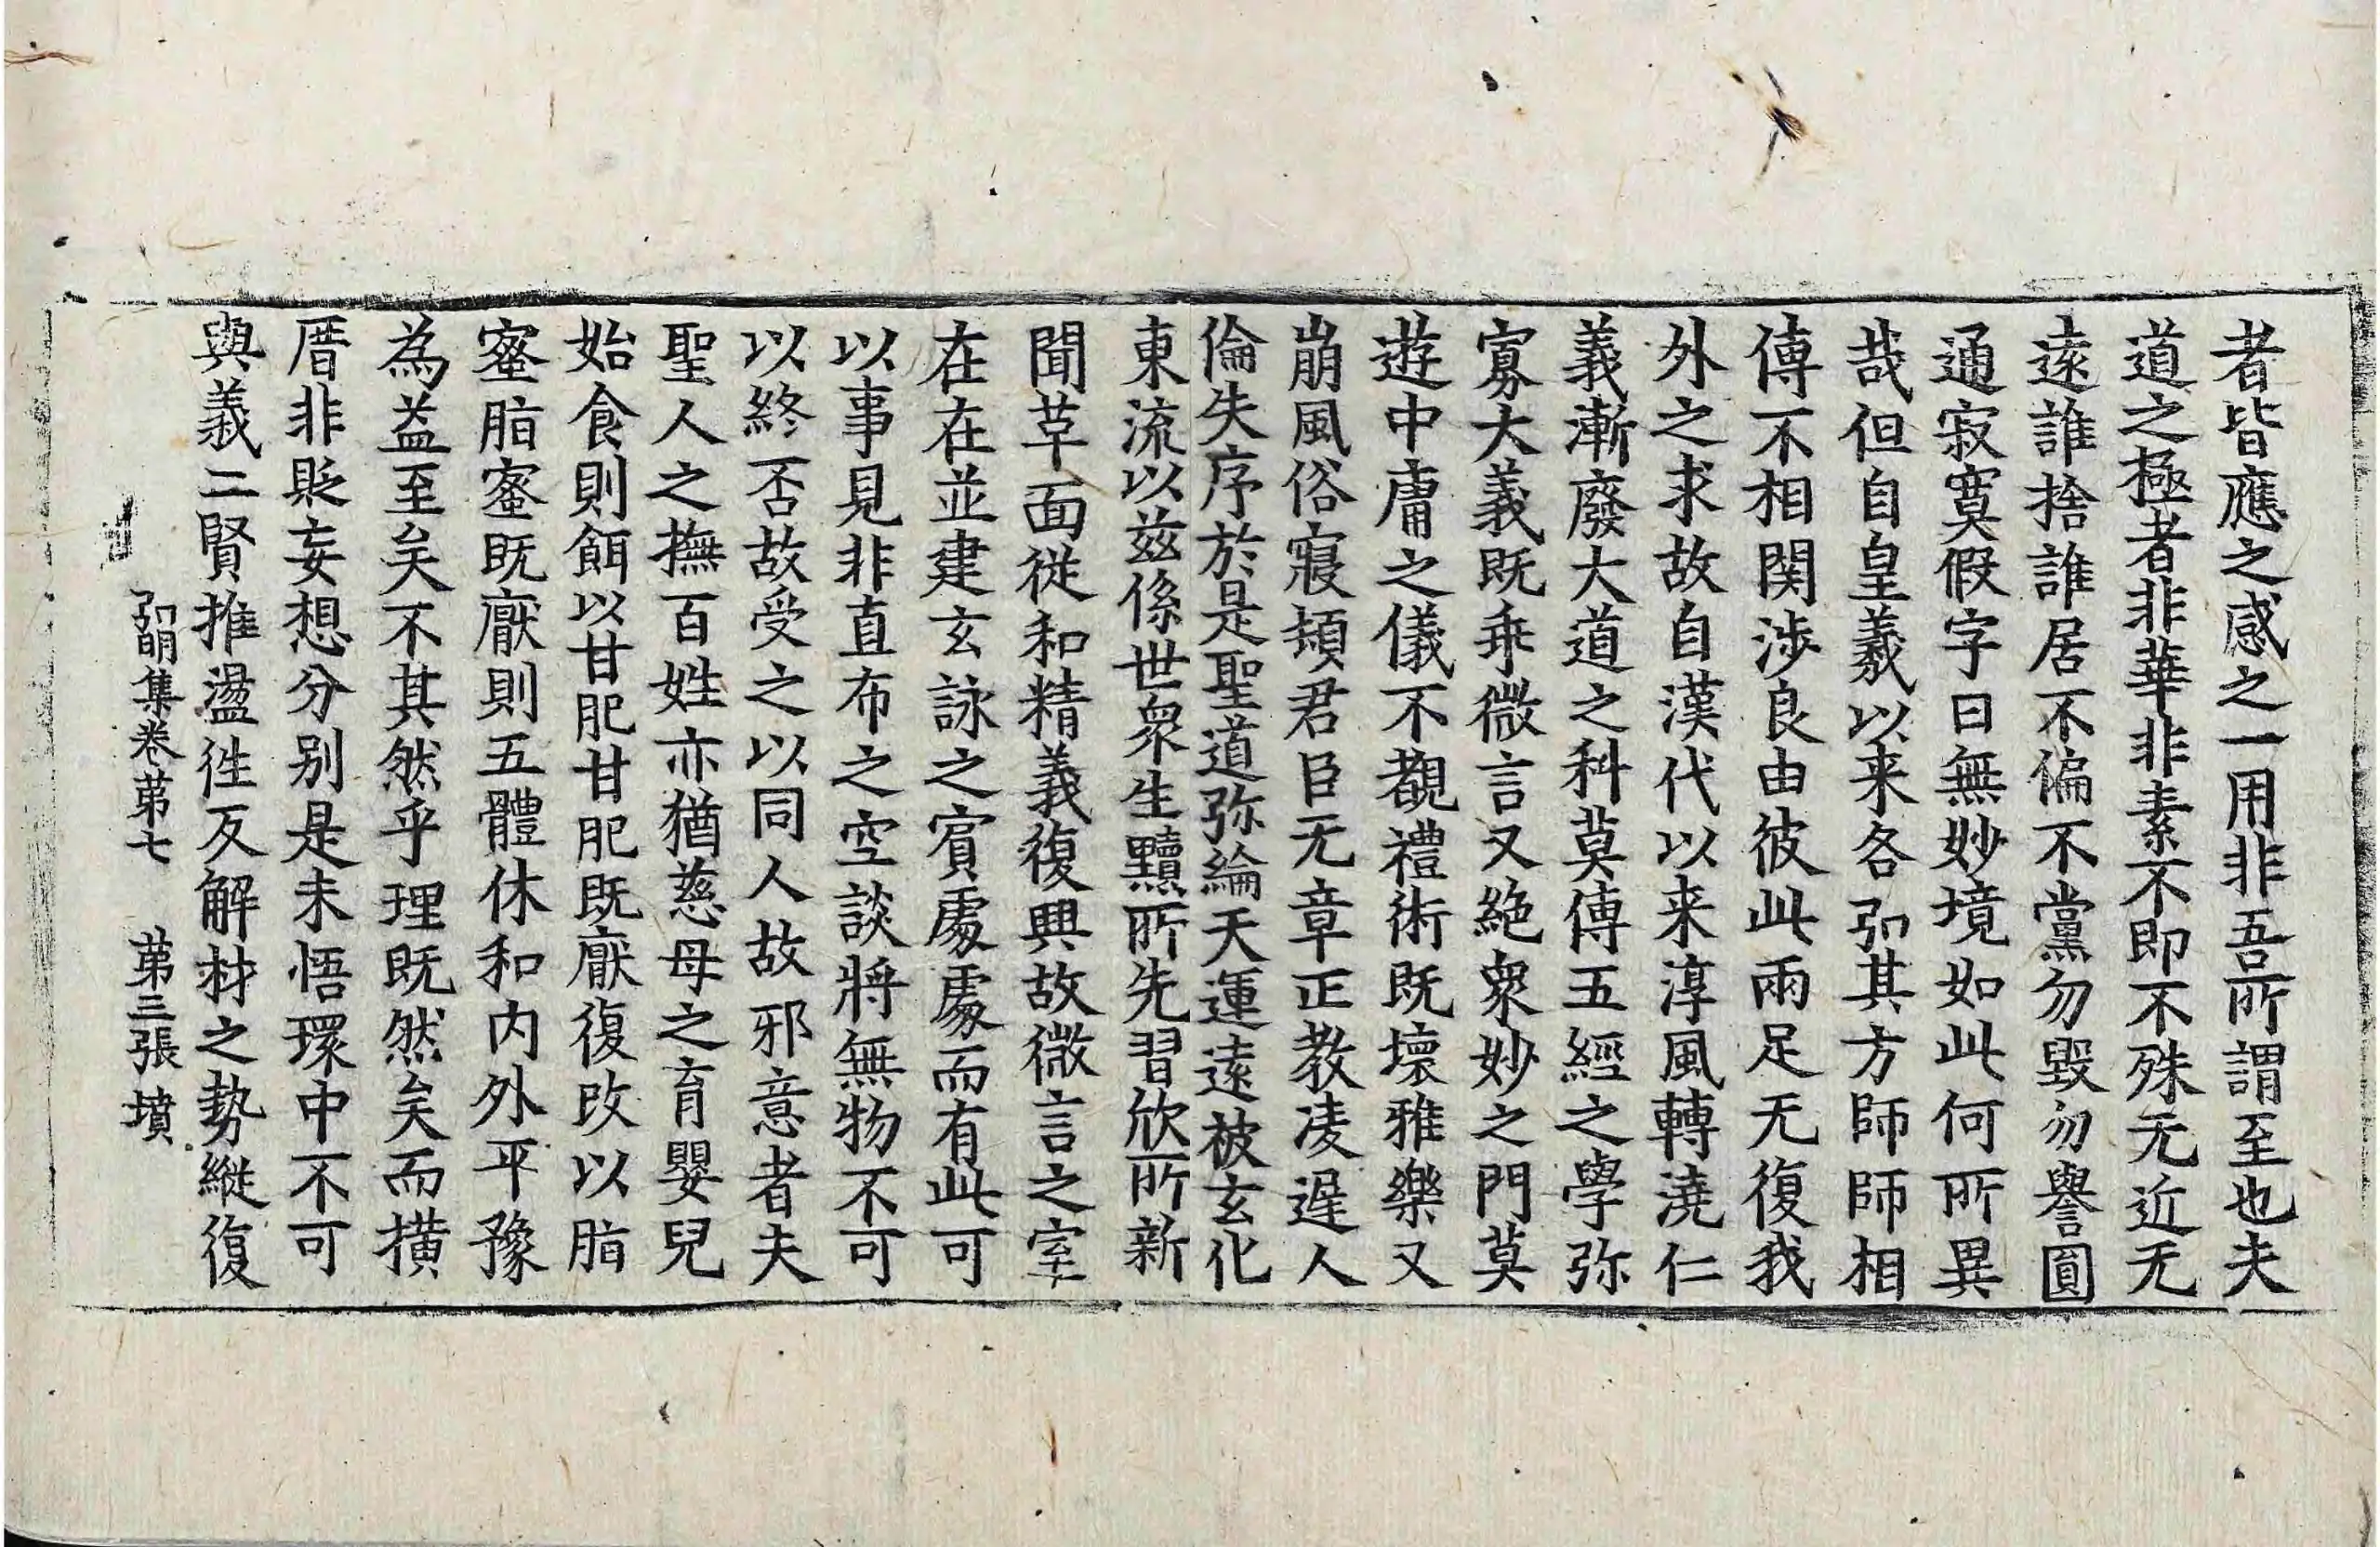 者皆應之感之一用非吾所謂至也夫
道之極者非華非素不即不殊无近无
遠誰捨誰居不偏不黨勿毀勿譽圓
通寂寞假字曰無妙境如此何所異
哉但自皇羲以来各弘其方師師相
傳不相関渉良由彼此兩足无復我
外之求故自漢代以来淳風轉澆仁
義漸廢大道之科莫傳五經之學弥
寡大義既乖微言又絶衆妙之門莫
遊中庸之儀不覩禮術既壞雅樂又
崩風俗寢頓君臣无章正教凌遲人
倫失序於是聖道弥綸天運遠被玄化
東流以兹係世衆生黷所先習欣所新
聞草面從和精義復興故微言之室
在在並建玄詠之賓處處而有此可
以事見非直布之空談將無物不可
以終否故受之以同人故邪意者夫
聖人之撫百姓亦猶慈母之育嬰兒
始食則餌以甘肥甘肥既厭復改以脂
蜜脂蜜既厭則五體休和内外平豫
為益至矣不其然乎理既然矣而横
厝非貶妄想分別是未悟環中不可
與義二賢推盪徃反解材之勢縱復
弘明集卷苐七 苐三張 墳